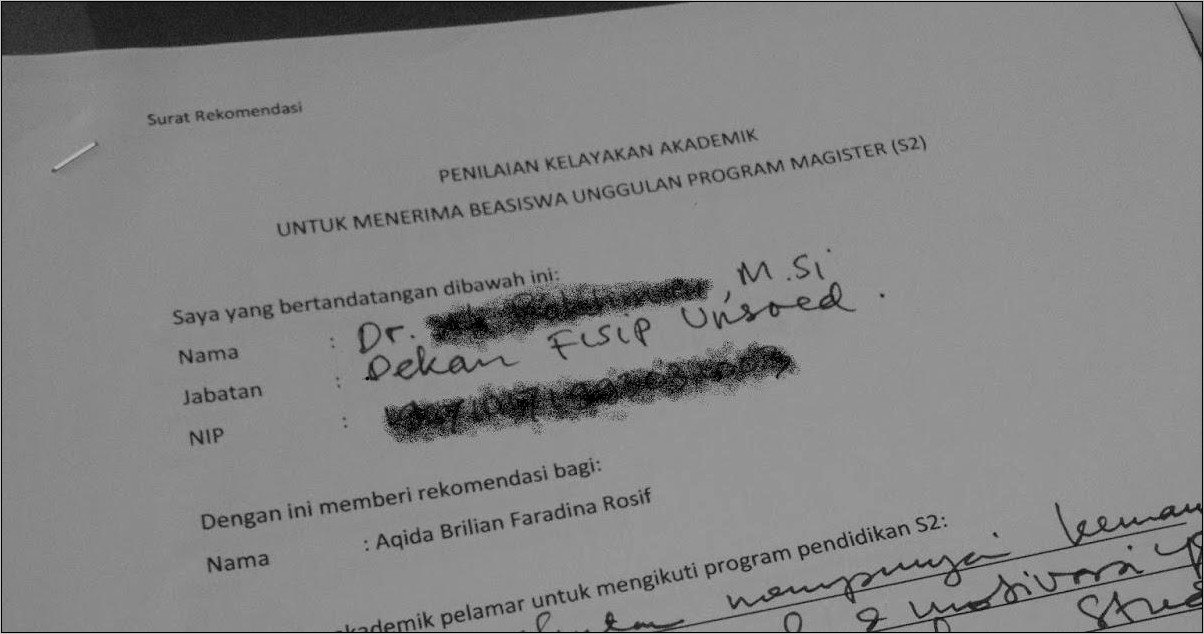 Surat Rekomendasi
PENILAIAN KELAYAKAN AKADEMIK
UNTUK MENERIMA BEASISWA UNGGULAN PROGRAM MAGISTER (S2)
Saya yang bertandatangan dibawah ini:
Nama : Dr. , M.Si
Jabatan : Dekan FISIP Unsoed.
NIP :
Dengan ini memberi rekomendasi bagi:
Nama : Aqida Brilian Faradina Rosif
akademik pelamar untuk mengikuti program pendidikan S2:
mempunyai
& motivasi